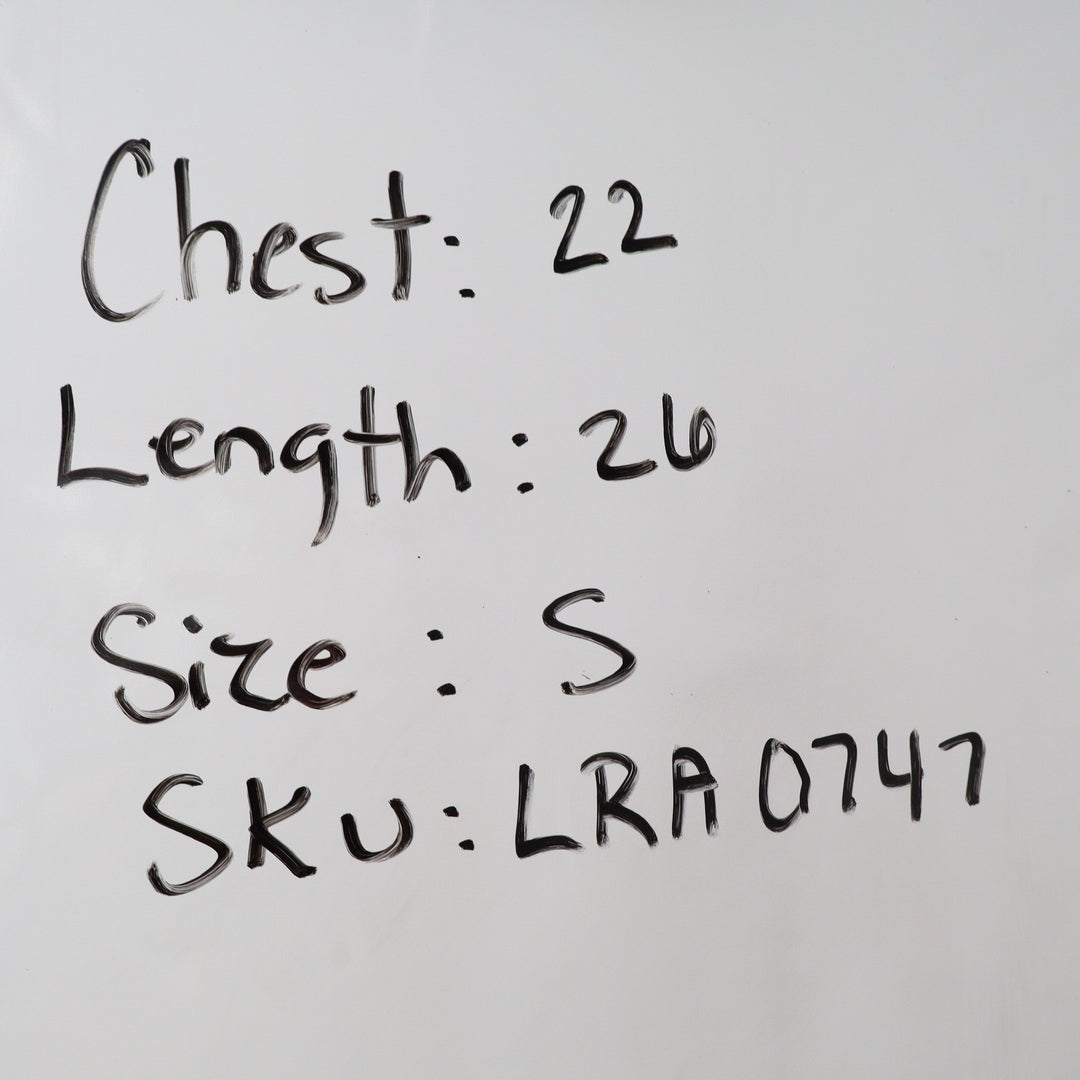 Chest: 22
Length: 26
Size: S
SKU: LRA 0747